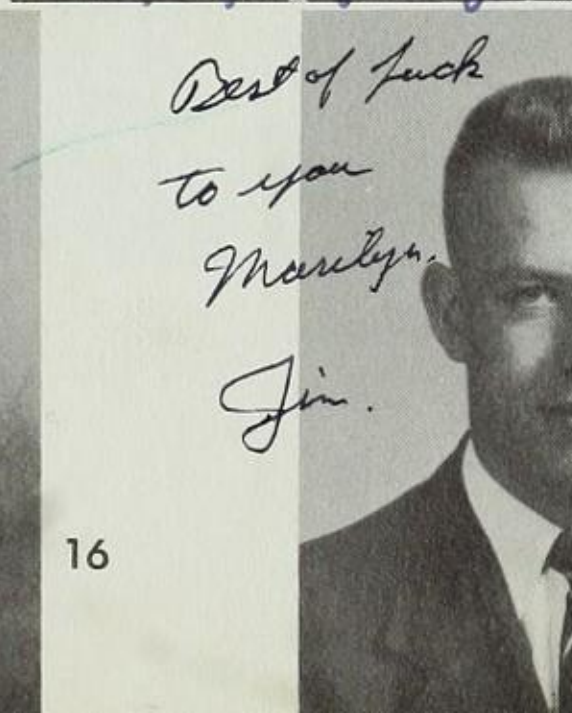 Best of luck
to you
Marilyn.
Jim.
16